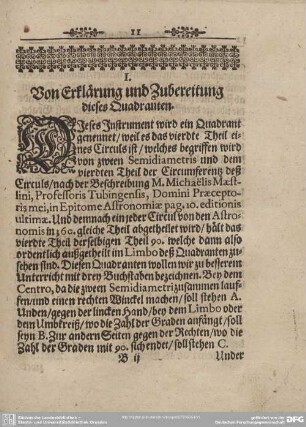 11
I.
Von Erklärung und Zubereitung
dieses Quadranten.
DIeses Instrument wird ein Quadrant
genennet / weil es das vierdte Theil ei-
nes Circuls ist / welches begriffen wird
von zween Semidiametris und dem
vierdten Theil der Circumferentz deß
Circuls / nach der Beschreibung M. Michaëlis Mæst-
lini, Professoris Tubingensis, Domini Præcepto-
ris mei, in Epitome Astronomiæ pag. 10. editionis
ultimæ. Und demnach ein jeder Circul von den Astro-
nomis in 360. gleiche Theil abgetheilet wird / hält das
vierdte Theil derselbigen Theil 90. welche dann also
ordentlich außgetheilt im Limbo deß Quadranten zu-
sehen sind. Diesen Quadranten wollen wir zu besserem
Unterricht mit drey Buchstaben bezeichnen. Bey dem
Centro, da die zween Semidiametri zusammen lauf-
fen / und einen rechten Winckel machen / soll stehen A.
Unden / gegen der lincken Hand / bey dem Limbo oder
dem Umbkreiß / wo die Zahl der Graden anfängt / soll
seyn B. Zur andern Seiten gegen der Rechten / wo die
Zahl der Graden mit 90. sich endet / soll stehen C.
B ij Under